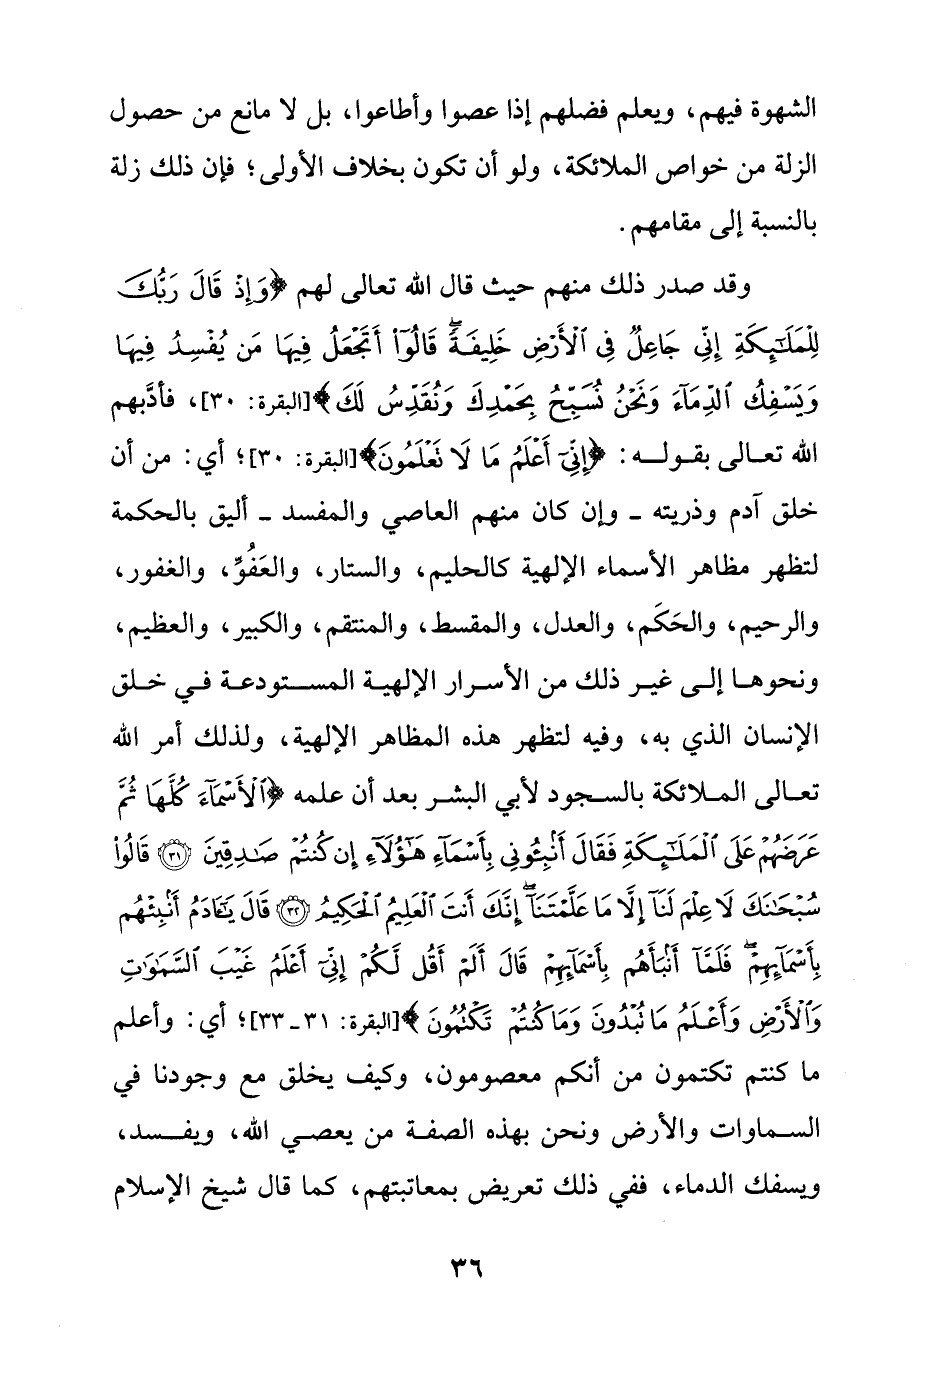 الشهوة فيهم، ويعلم فضلهم إذا عصوا وأطاعوا، بل لا مانع من حصول
الزلة من خواص الملائكة، ولو أن تكون بخلاف الأولى؛ فإن ذلك زلة
بالنسبة إلى مقامهم.
وقد صدر ذلك منهم حيث قال الله تعالى لهم ﴿وَإِذْ قَالَ رَبُّكَ
لِلْمَلَٰٓئِكَةِ إِنِّي جَاعِلٌ فِي ٱلْأَرْضِ خَلِيفَةً ۖ قَالُوٓا۟ أَتَجْعَلُ فِيهَا مَن يُفْسِدُ فِيهَا
وَيَسْفِكُ ٱلدِّمَآءَ وَنَحْنُ نُسَبِّحُ بِحَمْدِكَ وَنُقَدِّسُ لَكَ﴾[البقرة: ٣٠]، فأدَّبهم
الله تعالى بقوله: ﴿إِنِّيٓ أَعْلَمُ مَا لَا تَعْلَمُونَ﴾[البقرة: ٣٠]؛ أي: من أن
خلق آدم وذريته - وإن كان منهم العاصي والمفسد - أليق بالحكمة
لتظهر مظاهر الأسماء الإلهية كالحليم، والستار، والعَفُوِّ، والغفور،
والرحيم، والحَكَم، والعدل، والمقسط، والمنتقم، والكبير، والعظيم،
ونحوها إلى غير ذلك من الأسرار الإلهية المستودعة في خلق
الإنسان الذي به، وفيه لتظهر هذه المظاهر الإلهية، ولذلك أمر الله
تعالى الملائكة بالسجود لأبي البشر بعد أن علمه ﴿ٱلْأَسْمَآءَ كُلَّهَا ثُمَّ
عَرَضَهُمْ عَلَى ٱلْمَلَٰٓئِكَةِ فَقَالَ أَنۢبِـُٔونِي بِأَسْمَآءِ هَٰٓؤُلَآءِ إِن كُنتُمْ صَٰدِقِينَ ﴿٣١﴾ قَالُوا۟
سُبْحَٰنَكَ لَا عِلْمَ لَنَآ إِلَّا مَا عَلَّمْتَنَآ ۖ إِنَّكَ أَنتَ ٱلْعَلِيمُ ٱلْحَكِيمُ ﴿٣٢﴾ قَالَ يَٰٓـَٔادَمُ أَنۢبِئْهُم
بِأَسْمَآئِهِمْ ۖ فَلَمَّآ أَنۢبَأَهُم بِأَسْمَآئِهِمْ قَالَ أَلَمْ أَقُل لَّكُمْ إِنِّيٓ أَعْلَمُ غَيْبَ ٱلسَّمَٰوَٰتِ
وَٱلْأَرْضِ وَأَعْلَمُ مَا تُبْدُونَ وَمَا كُنتُمْ تَكْتُمُونَ ﴾[البقرة: ٣١ - ٣٣]؛ أي: وأعلم
ما كنتم تكتمون من أنكم معصومون، وكيف يخلق مع وجودنا في
السماوات والأرض ونحن بهذه الصفة من يعصي الله، ويفسد،
ويسفك الدماء، ففي ذلك تعريض بمعاتبتهم، كما قال شيخ الإسلام
٣٦